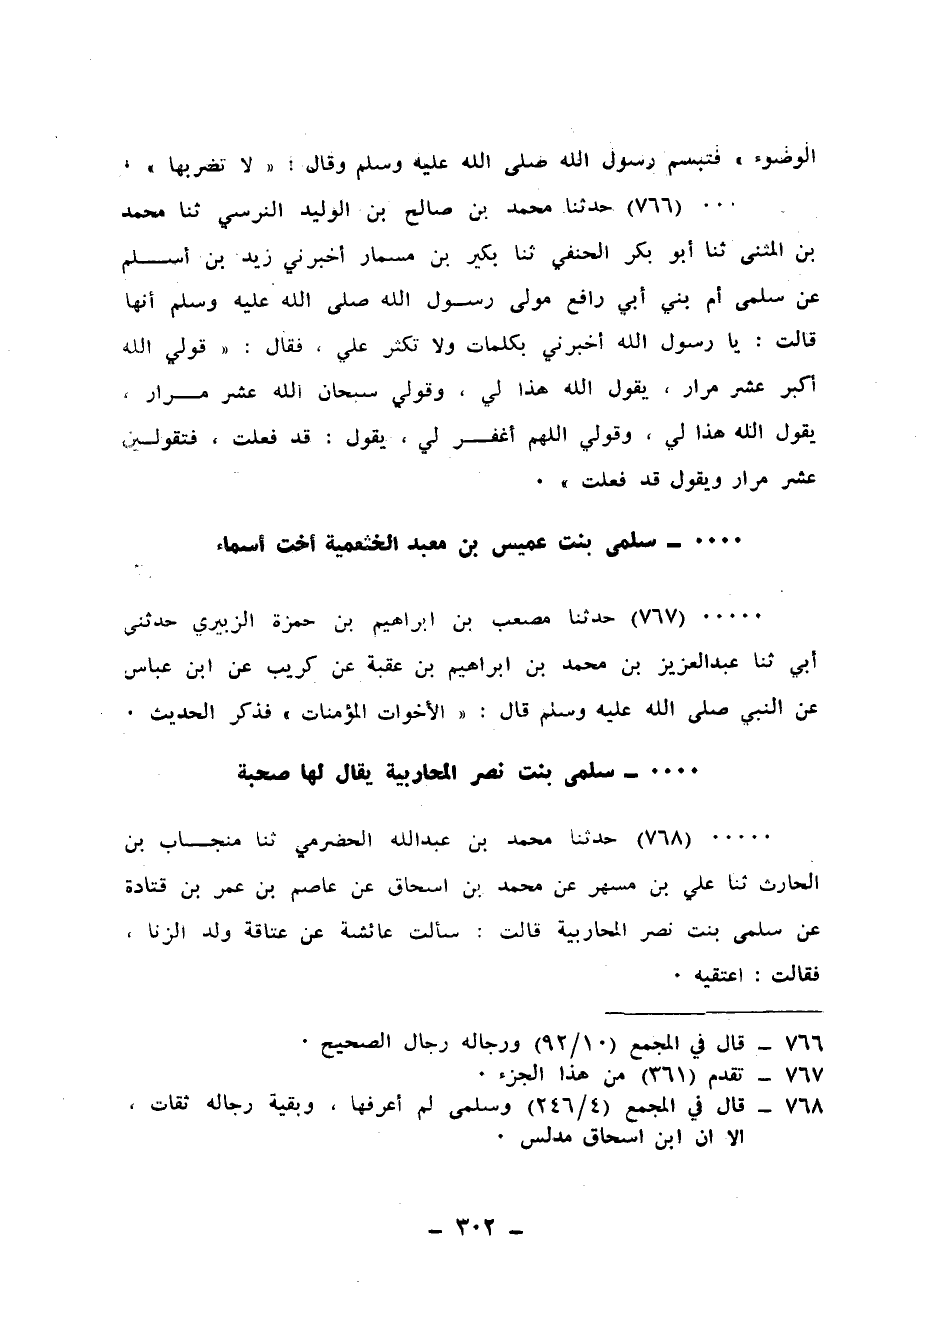 الوضوء » فتبسم رسول الله صلى الله عليه وسلم وقال : « لا تضربها » ٠
٠٠٠ (٧٦٦) حدثنا محمد بن صالح بن الوليد النرسي ثنا محمد
بن المثنى ثنا أبو بكر الحنفي ثنا بكير بن مسمار أخبرني زيد بن أسلم
عن سلمى أم بني أبي رافع مولى رسول الله صلى الله عليه وسلم أنها
قالت : يا رسول الله أخبرني بكلمات ولا تكثر علي ، فقال : « قولي الله
أكبر عشر مرار ، يقول الله هذا لي ، وقولي سبحان الله عشر مرار ،
يقول الله هذا لي ، وقولي اللهم أغفر لي ، يقول : قد فعلت ، فتقولين
عشر مرار ويقول قد فعلت » ٠
٠٠٠٠ ـ سلمى بنت عميس بن معبد الخثعمية أخت أسماء
٠٠٠٠٠ (٧٦٧) حدثنا مصعب بن ابراهيم بن حمزة الزبيري حدثني
أبي ثنا عبدالعزيز بن محمد بن ابراهيم بن عقبة عن كريب عن ابن عباس
عن النبي صلى الله عليه وسلم قال : « الأخوات المؤمنات » فذكر الحديث ٠
٠٠٠٠ ـ سلمى بنت نصر المحاربية يقال لها صحبة
٠٠٠٠٠ (٧٦٨) حدثنا محمد بن عبدالله الحضرمي ثنا منجاب بن
الحارث ثنا علي بن مسهر عن محمد بن اسحاق عن عاصم بن عمر بن قتادة
عن سلمى بنت نصر المحاربية قالت : سألت عائشة عن عتاقة ولد الزنا ،
فقالت : اعتقيه ٠
٧٦٦ ـ قال في المجمع (٩٢/١٠) ورجاله رجال الصحيح ٠
٧٦٧ ـ تقدم (٣٦١) من هذا الجزء ٠
٧٦٨ ـ قال في المجمع (٢٤٦/٤) وسلمى لم أعرفها ، وبقية رجاله ثقات ،
الا ان ابن اسحاق مدلس ٠
ـ ٣٠٢ ـ